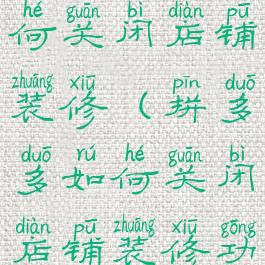 hé guān bì diàn pū
何关闭店铺
zhuāng xiū pīn duō
装修（拼多
duō rú hé guān bì
多如何关闭
diàn pū zhuāng xiū gōng
店铺装修功